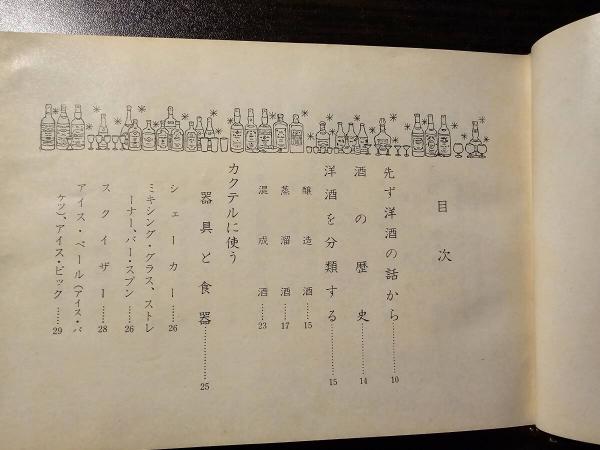 目次
先ず洋酒の話から……………10
酒の歴史……………14
洋酒を分類する……………15
醸造酒……15
蒸溜酒……17
混成酒……23
カクテルに使う
器具と食器……………25
シェーカー……26
ミキシング・グラス、ストレ
ーナー、バー・スプン……26
スクイザー……28
アイス・ペール(アイス・バ
ケツ)、アイス・ピック……29